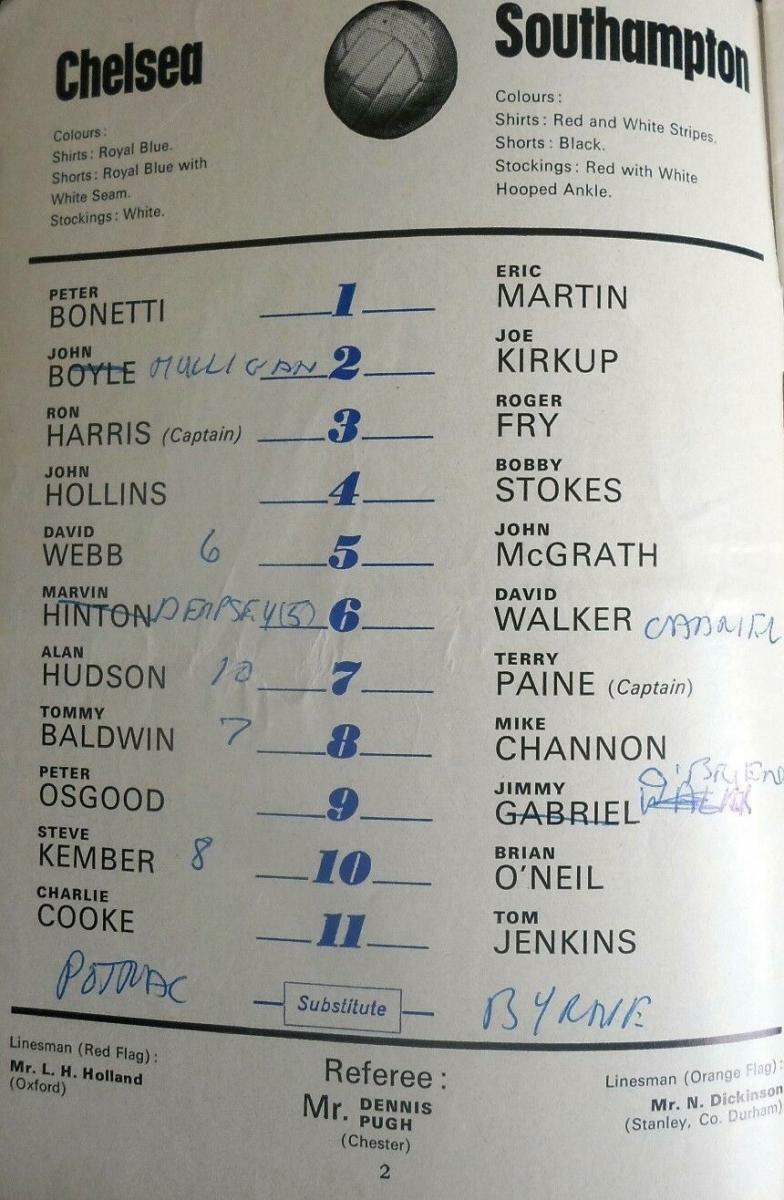 Chelsea
Colours:
Shirts: Royal Blue.
Shorts: Royal Blue with
White Seam.
Stockings: White.
Southampton
Colours:
Shirts: Red and White Stripes.
Shorts: Black.
Stockings: Red with White
Hooped Ankle.
PETER
BONETTI 1 ERIC
MARTIN
JOHN
BOYLE MULLIGAN 2 JOE
KIRKUP
RON
HARRIS (Captain) 3 ROGER
FRY
JOHN
HOLLINS 4 BOBBY
STOKES
DAVID
WEBB 6 5 JOHN
McGRATH
MARVIN
HINTON DEMPSEY (5) 6 DAVID
WALKER GABRIEL
ALAN
HUDSON 10 7 TERRY
PAINE (Captain)
TOMMY
BALDWIN 7 8 MIKE
CHANNON
PETER
OSGOOD 9 JIMMY
GABRIEL
STEVE
KEMBER 8 10 BRIAN
O'NEIL
CHARLIE
COOKE 11 TOM
JENKINS
Substitute BYRNE
Linesman (Red Flag):
Mr. L. H. Holland
(Oxford)
Referee:
Mr. DENNIS
PUGH
(Chester)
Linesman (Orange Flag):
Mr. N. Dickinson
(Stanley, Co. Durham)
2